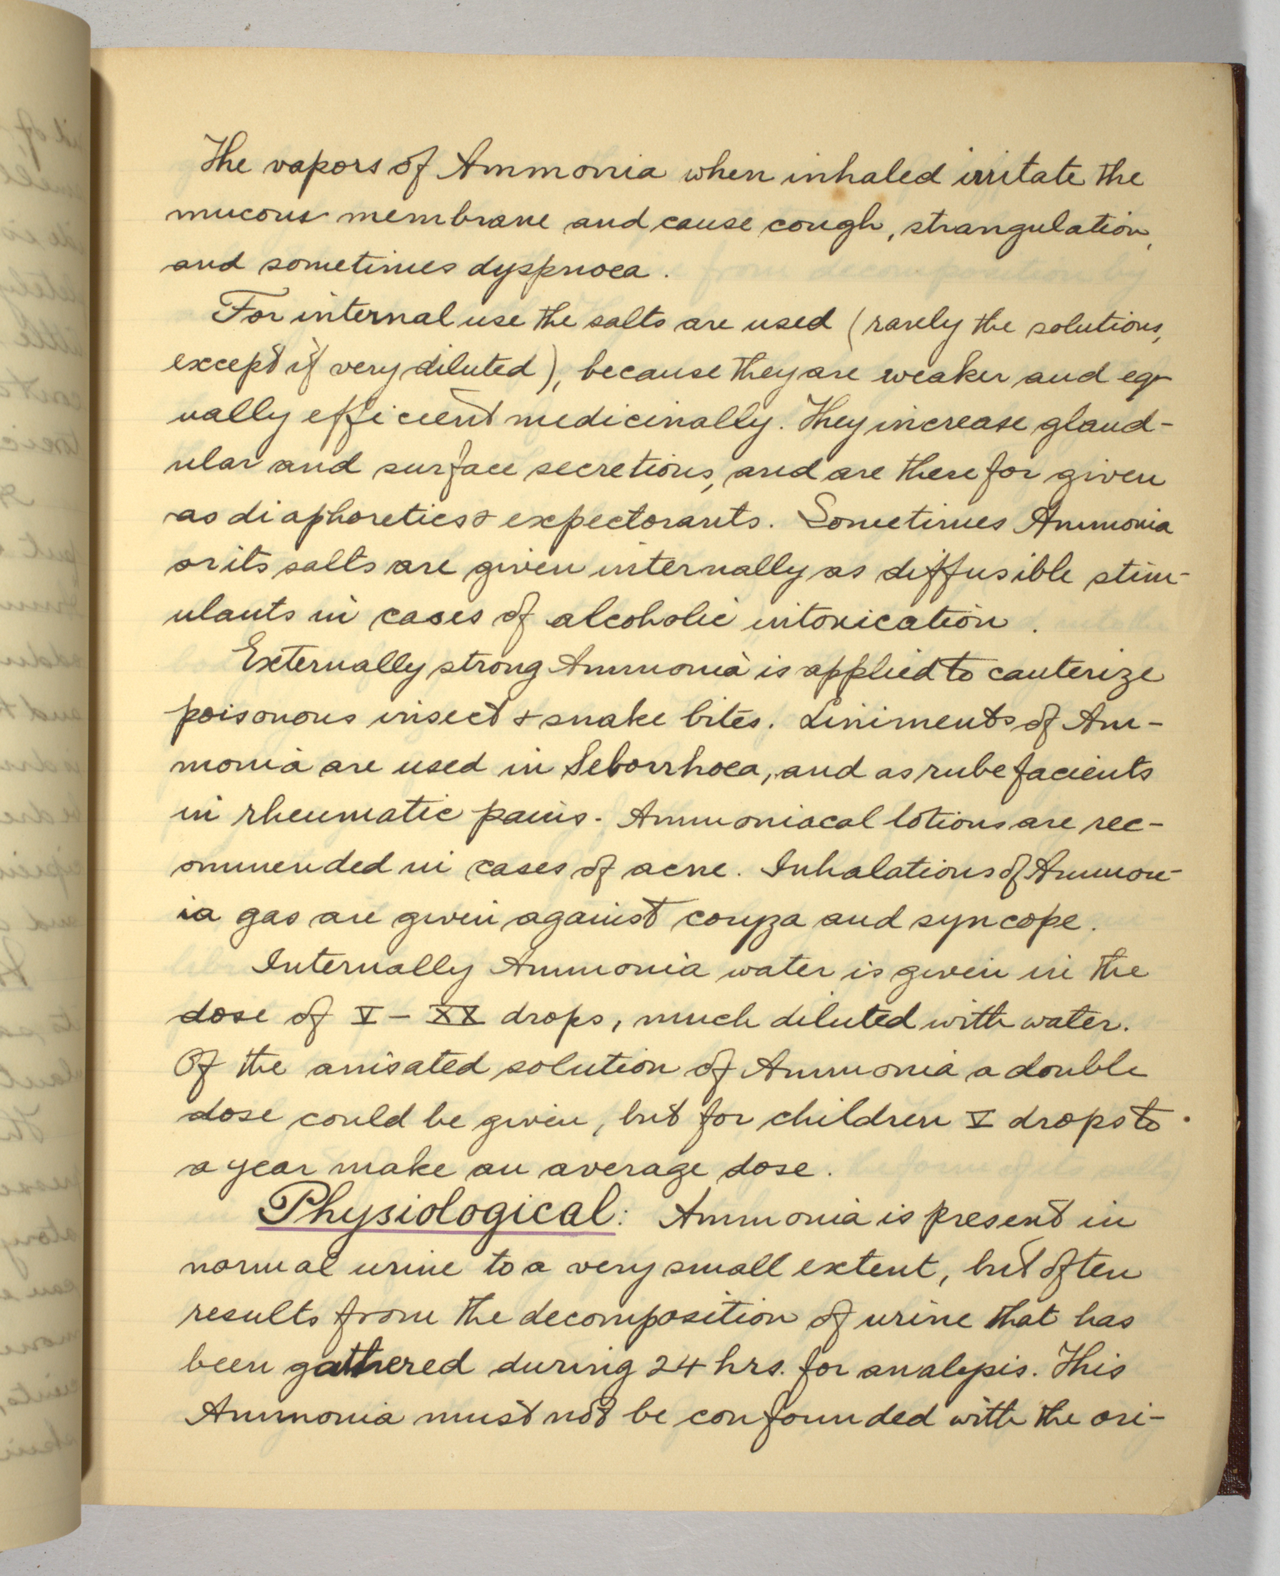 The vapors of Ammonia when inhaled irritate the
mucous membrane and cause cough, strangulation,
and sometimes dyspnoea.
For internal use the salts are used (rarely the solutions,
except if very diluted), because they are weaker and eq-
ually efficient medicinally. They increase gland-
ular and surface secretions, and are therefor given
as diaphoretics & expectorants. Sometimes Ammonia
or its salts are given internally as diffusible stim-
ulants in cases of alcoholic intoxication.
Externally strong Ammonia is applied to cauterize
poisonous insect & snake bites. Liniments of Am-
monia are used in Seborrhoea, and as rubefacients
in rheumatic pains. Ammoniacal lotions are rec-
ommended in cases of acne. Inhalations of Ammon-
ia gas are given against coryza and syncope.
Internally Ammonia water is given in the
dose of V – XX drops, much diluted with water.
Of the anisated solution of Ammonia a double
dose could be given, but for children V drops to
a year make an average dose.
Physiological: Ammonia is present in
normal urine to a very small extent, but often
results from the decomposition of urine that has
been gathered during 24 hrs. for analysis. This
Ammonia must not be confounded with the ori-